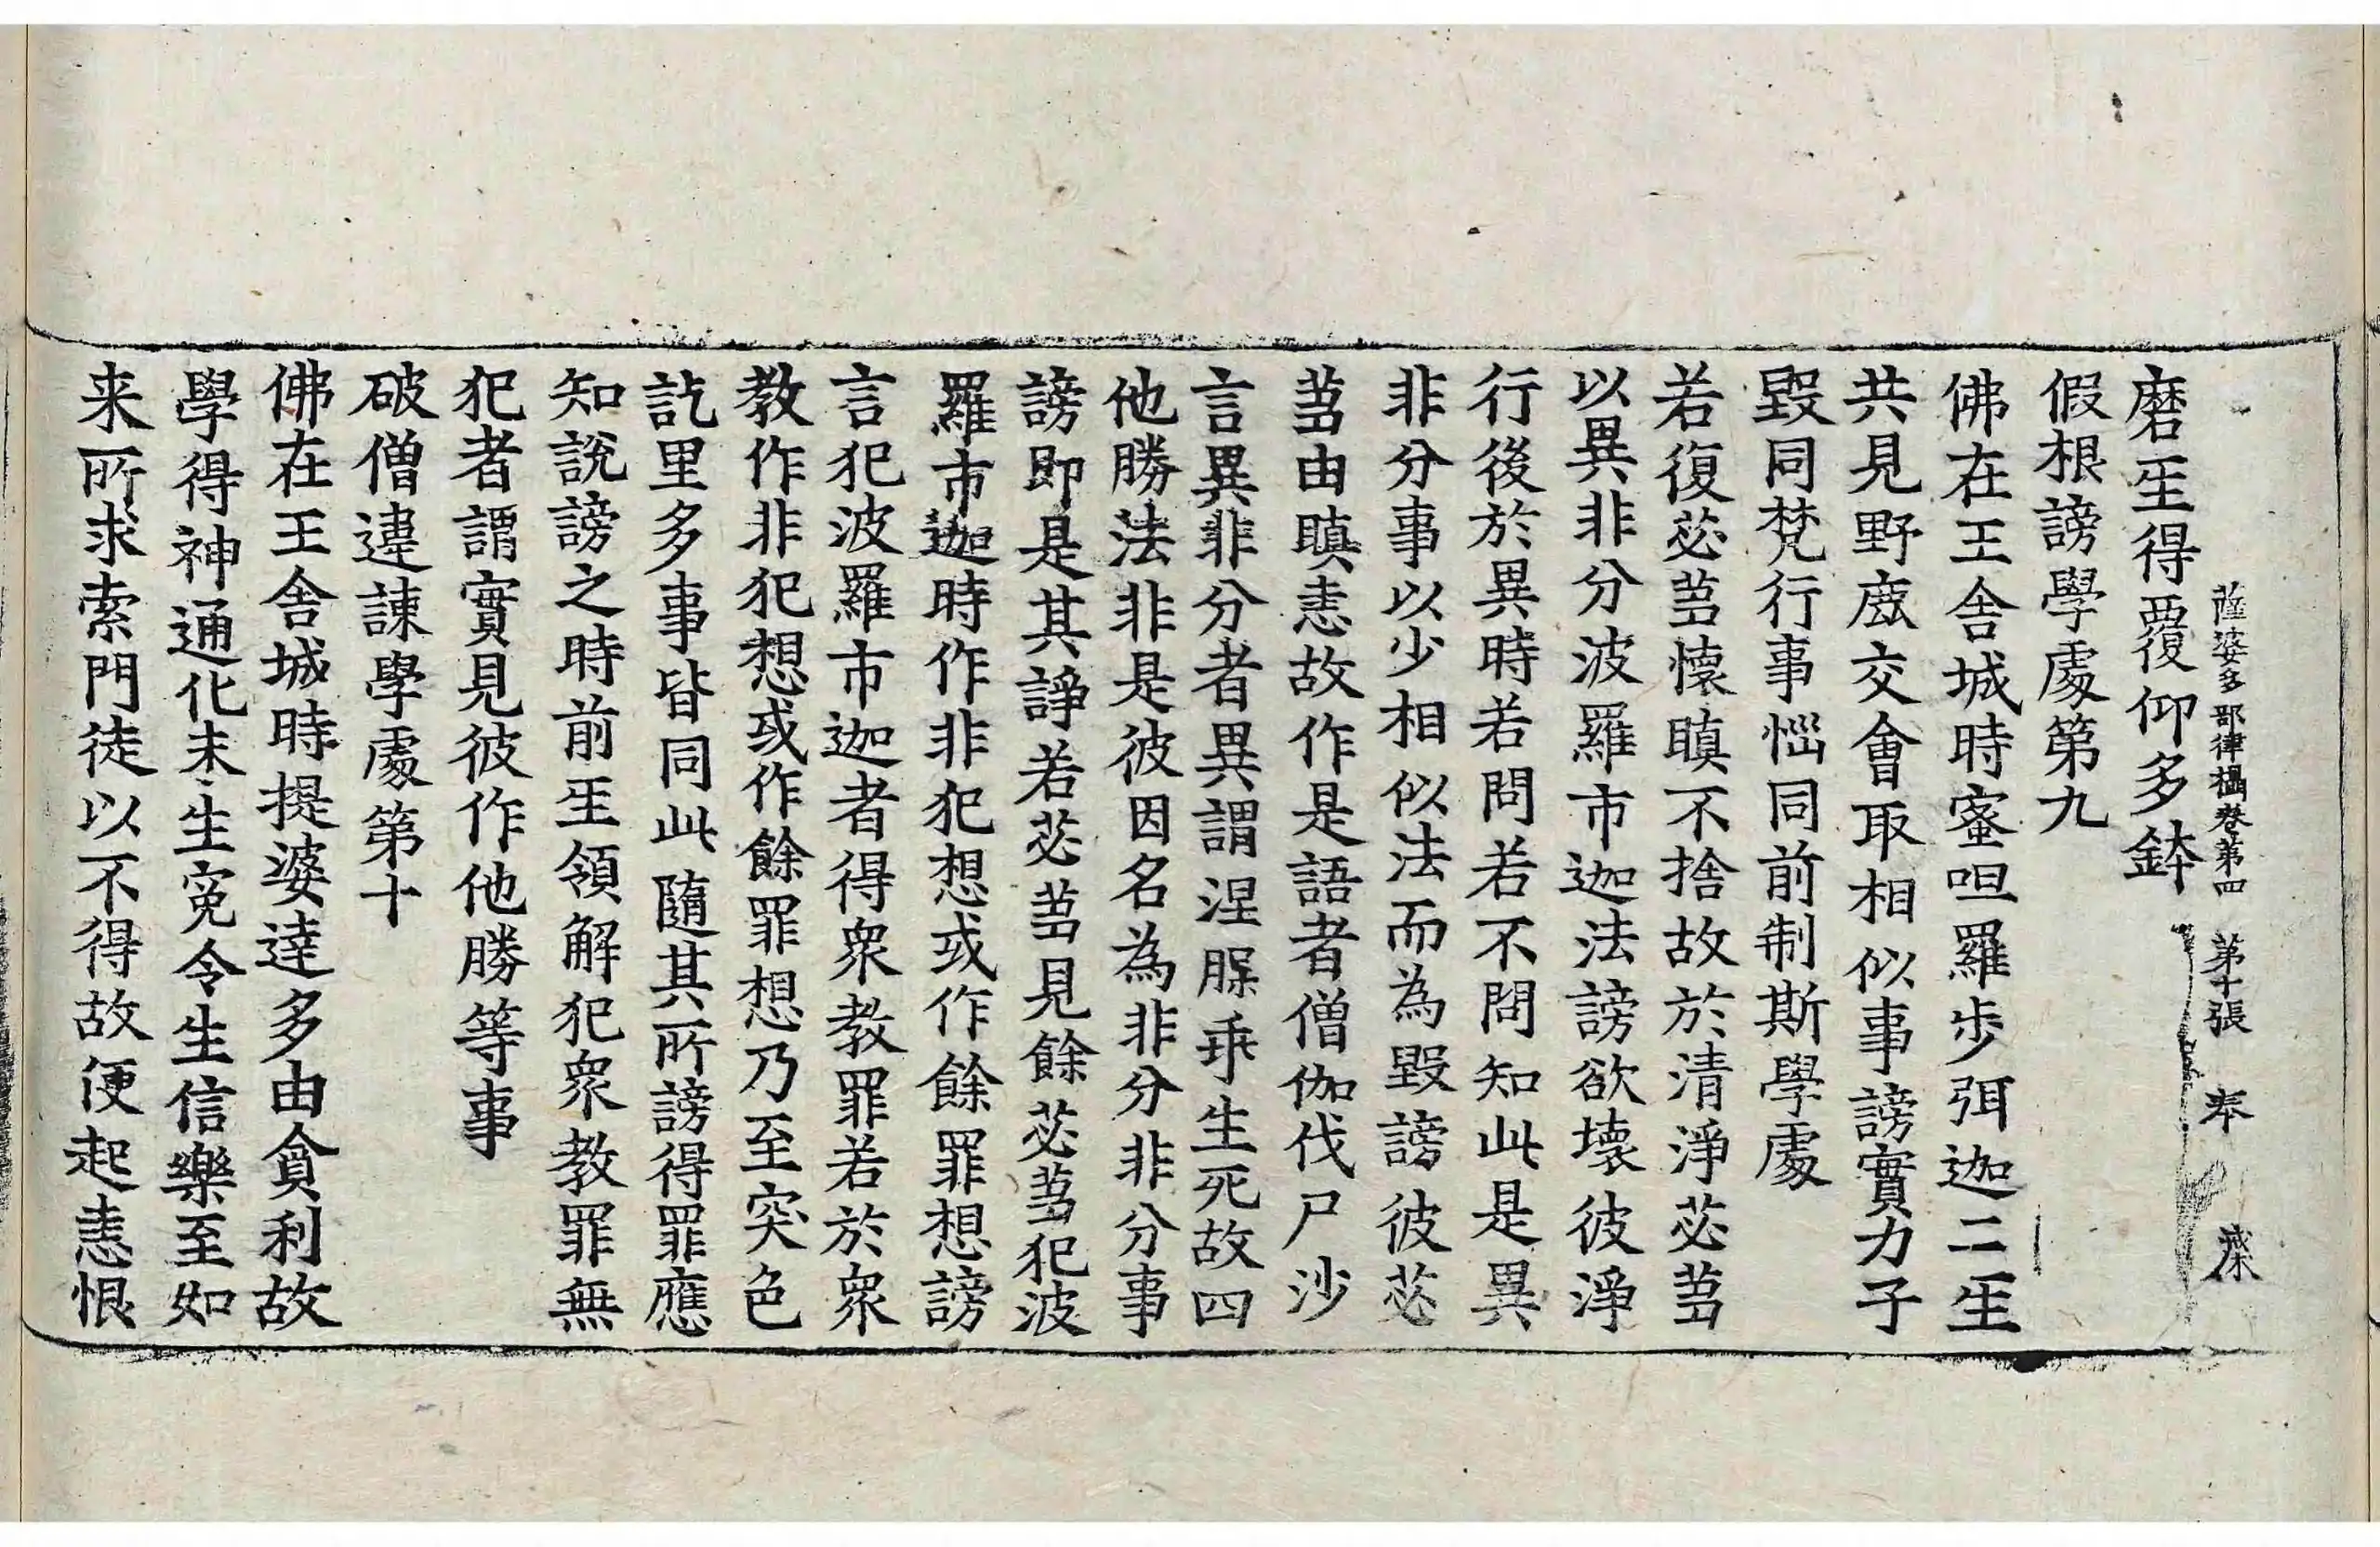 薩婆多部律攝卷第四　第十張　奉
磨𤯔得覆仰多鉢
假根謗學處第九
佛在王舍城時蜜呾羅步弭迦二𤯔
共見野鹿交會取相似事謗實力子
毀同梵行事惱同前制斯學處
若復苾芻懷瞋不捨故於清淨苾芻
以異非分波羅市迦法謗欲壞彼淨
行後於異時若問若不問知此是異
非分事以少相似法而為毀謗彼苾
芻由瞋恚故作是語者僧伽伐尸沙
言異非分者異謂涅槃乖生死故四
他勝法非是彼因名為非分非分事
謗即是其諍若苾芻見餘苾芻犯波
羅市迦時作非犯想或作餘罪想謗
言犯波羅市迦者得眾教罪若於眾
教作非犯想或作餘罪想乃至突色
訖里多事皆同此隨其所謗得罪應
知說謗之時前𤯔領解犯眾教罪無
犯者謂實見彼作他勝等事
破僧違諫學處第十
佛在王舍城時提婆達多由貪利故
學得神通化未生冤令生信樂至如
来所求索門徒以不得故便起恚恨